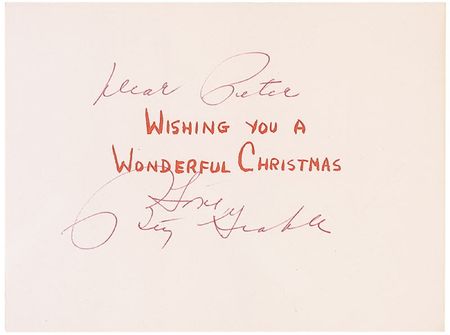 Dear Peter
WISHING YOU A
WONDERFUL CHRISTMAS
Love
Betty Grable